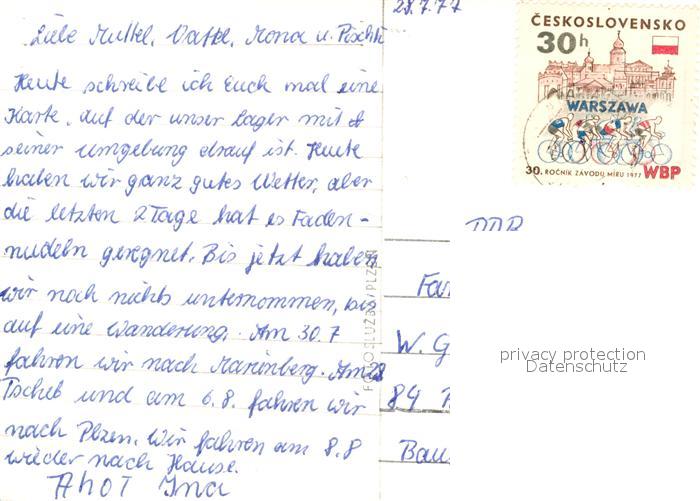 28.7.77
Liebe Muttel, Vattel, Mona u. Pischti
Heute schreibe ich Euch mal eine
Karte, auf der unser Lager mit
seiner Umgebung drauf ist. Heute
haben wir ganz gutes Wetter, aber
die letzten 2 Tage hat es Faden-
nudeln geregnet. Bis jetzt haben
wir noch nichts unternommen, bis
auf eine Wanderung. Am 30.7
fahren wir nach Marienberg. Am 28
Tscheb und am 6.8. fahren wir
nach Plzen. Wir fahren am 8.8
wieder nach Hause.
Ahoi Ina
FOTOSLUŽBA/PLZEŇ
ČESKOSLOVENSKO
30h
WARSZAWA
30. ROČNÍK ZÁVODU MÍRU 1977 WBP
DDR
Fa
W. G
84
Bau
privacy protection
Datenschutz